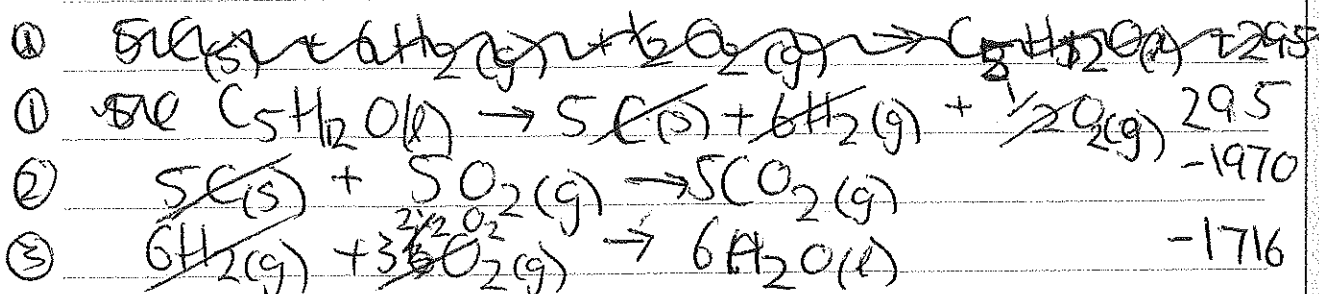 ① 5C(s) + 6H₂(g) + ½O₂(g) → C₅H₁₂O(l) + 295
① C₅H₁₂O(l) → 5C(s) + 6H₂(g) + ½O₂(g) 295
② 5C(s) + 5O₂(g) → 5CO₂(g) -1970
③ 6H₂(g) + 3O₂(g) → 6H₂O(l) -1716